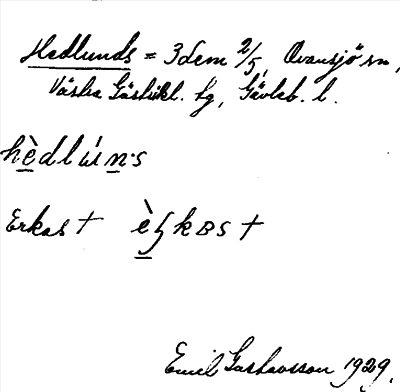 Hedlunds = 3 dem 2/5, Ovansjö sn,
Västra Gästrikl. tg, Gävleb. l.
hèdlún·s
Erkas † èʒkas †
Emil Gustavsson 1929.